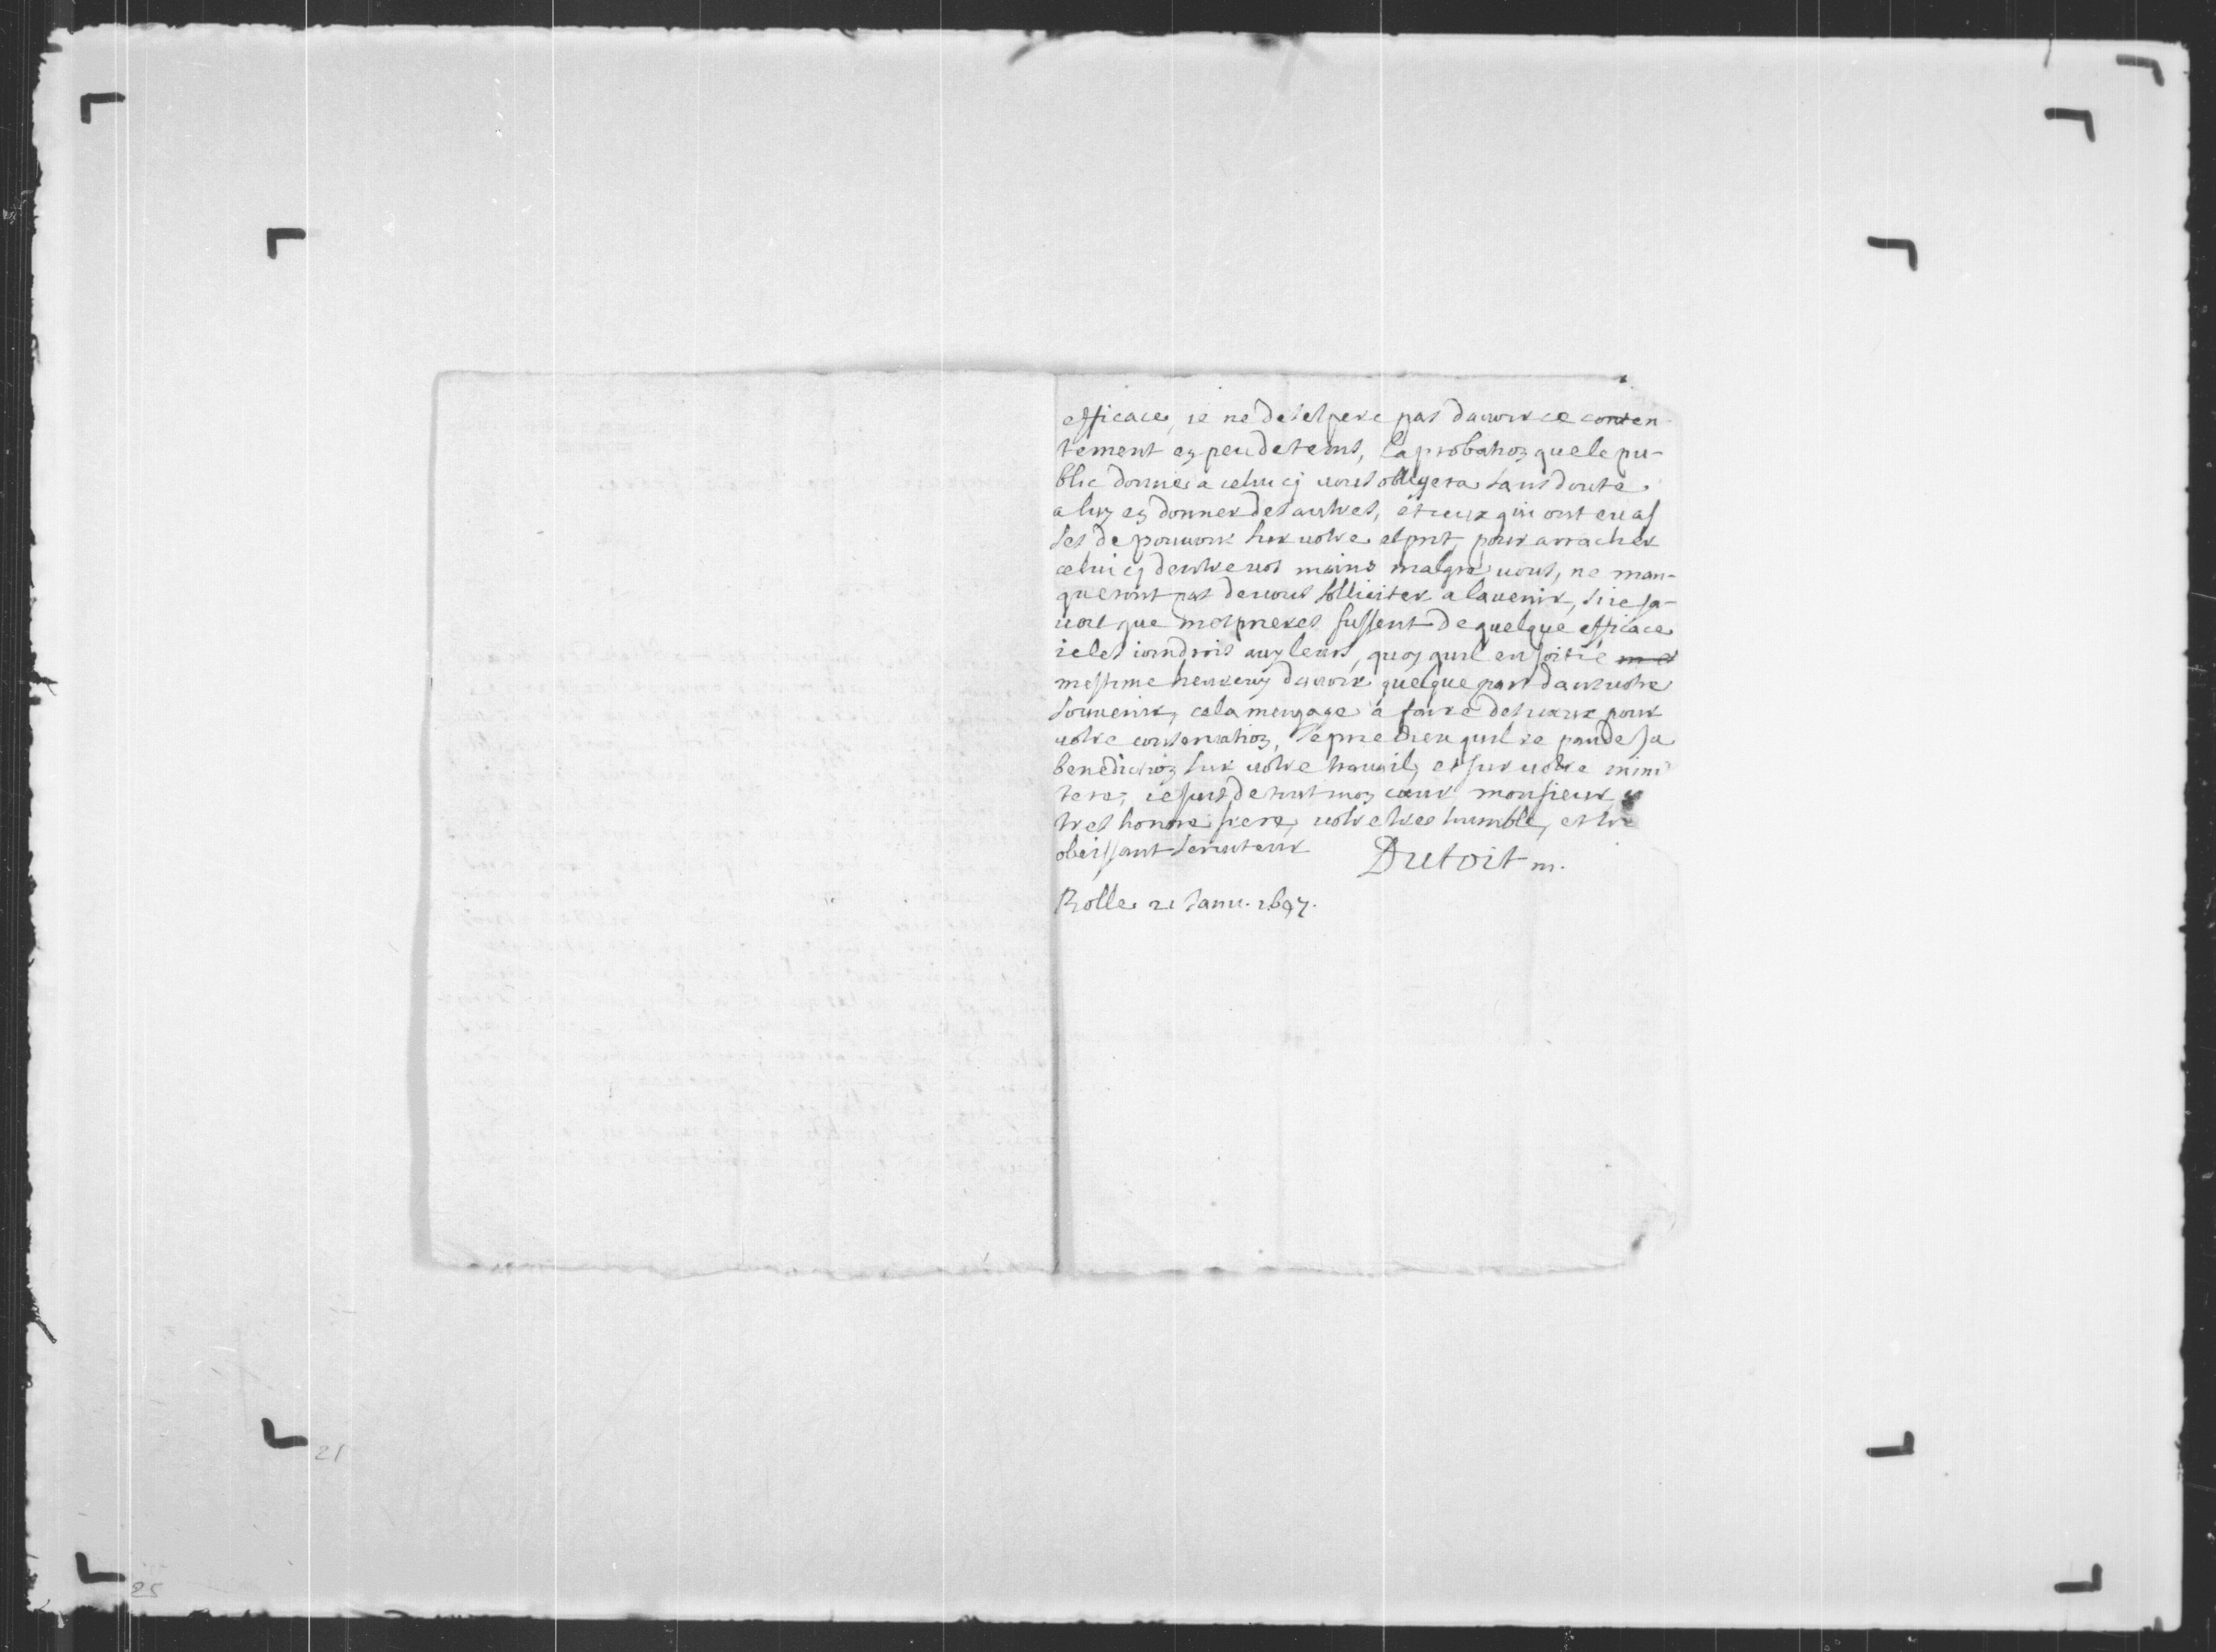 efficace, ie ne desespere pas dauoir ce conten-
tement en peu de tems, laprobation que le pu-
blic donne a celui cy uous obligera sans doute
a luy en donner des autres, et ceux qui ont eu as
ses de pouuoir sur uotre esprit, pour arracher
celui cy dentre uos mains malgré uous, ne man-
queront pas de uous solliciter a lauenir, si ie sa-
uois que mes prieres fussent de quelque efficace
ie les ioindrois aux leurs, quoy quil en soit ie
mestime heureux dauoir quelque part dans uotre
souuenir, cela mengage a faire des ueux pour
uotre conseruation, Je prie Dieu quil repande sa
benediction sur uotre trauail, et sur uotre mini
tere, ie suis de tout mon cœur monsieur
tres honoré frere, uotre tres humble, et tre
obeissant seruiteur Dutoit m.
Rolle 21 Janu. 1697.
21
25